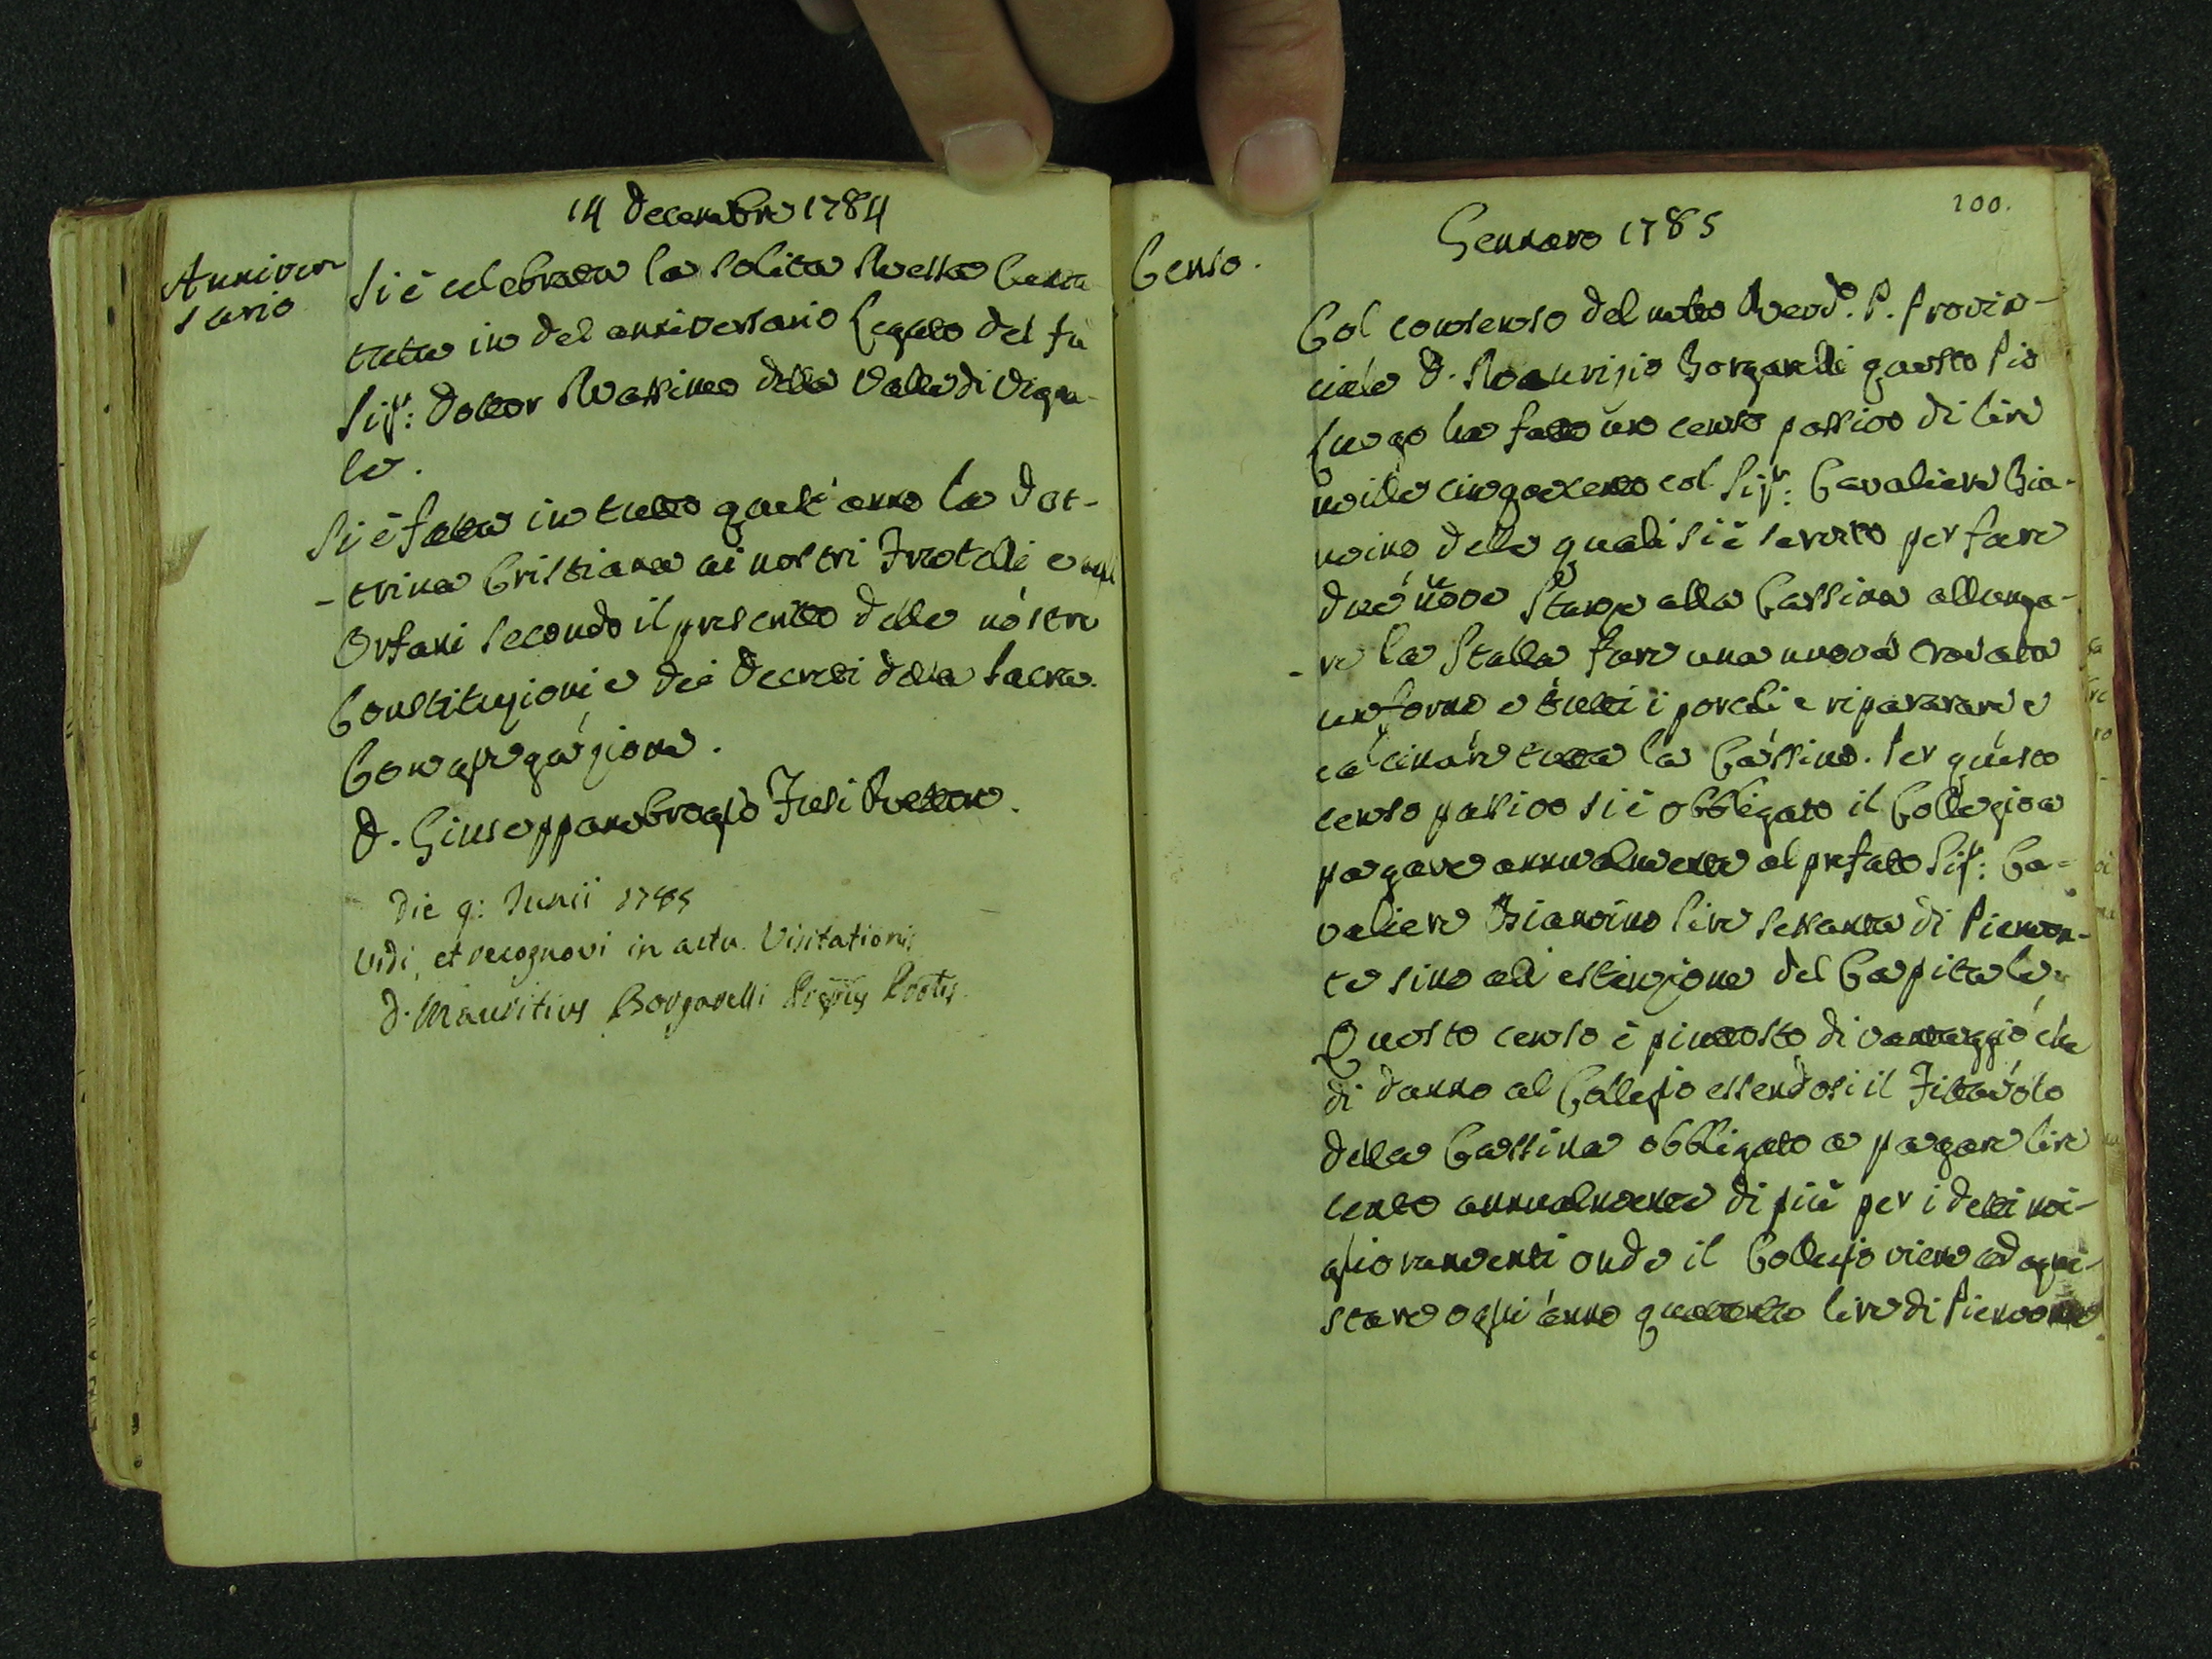 14 Decembre 1784
Anniver
sario
Si è celebrata la solita Messa Canta
tata in del anniversario Legato del fù
Sig.r Dottor Massimo della Valle di Vigna-
le.
Si è fatta in tutto quest'anno la Dot-
-trina Cristiana ai nostri Fratelli e
Orfani secondo il prescritto delle nostre
Constituzioni e dei Decreti della Sacra
Congregazione.
D. Giuseppambrogio Fusi Rettore.
Die 9: Junii 1785
Vidi, et recognovi in actu Visitationis
D. Mauritius Borgarelli
200.
Gennaro 1785
Censo.
Col consenso del molto Rev.do P. Provin-
ciale D. Maurizio Borgarelli questo Pio
Luogo ha fatto un censo passivo di lire
mille cinquecento col Sig.r: Cavaliere Bia-
noino delle quali si è servito per fare
due nove Stanze alla Cassina allunga-
-re la Stalla fare una nuova Crovata
un forno e tutti i porcili e ripararare e
calcinare tutta la Cassina. Per questo
censo passivo si è obbligato il Collegio a
pagare annualmente al prefato Sig.r: Ca-
valiere Bianoino lire sessanta di Piemon-
te sino all'estinzione del Capitale.
Questo censo è piuttosto di vantaggio che
di danno al Collegio essendosi il Fittavolo
della Cassina obbligato a pagare lire
cento annualmente di più per i detti mi-
glioramenti onde il Collegio viene ad aqui-
stare ogni anno quaranta lire di Piemonte